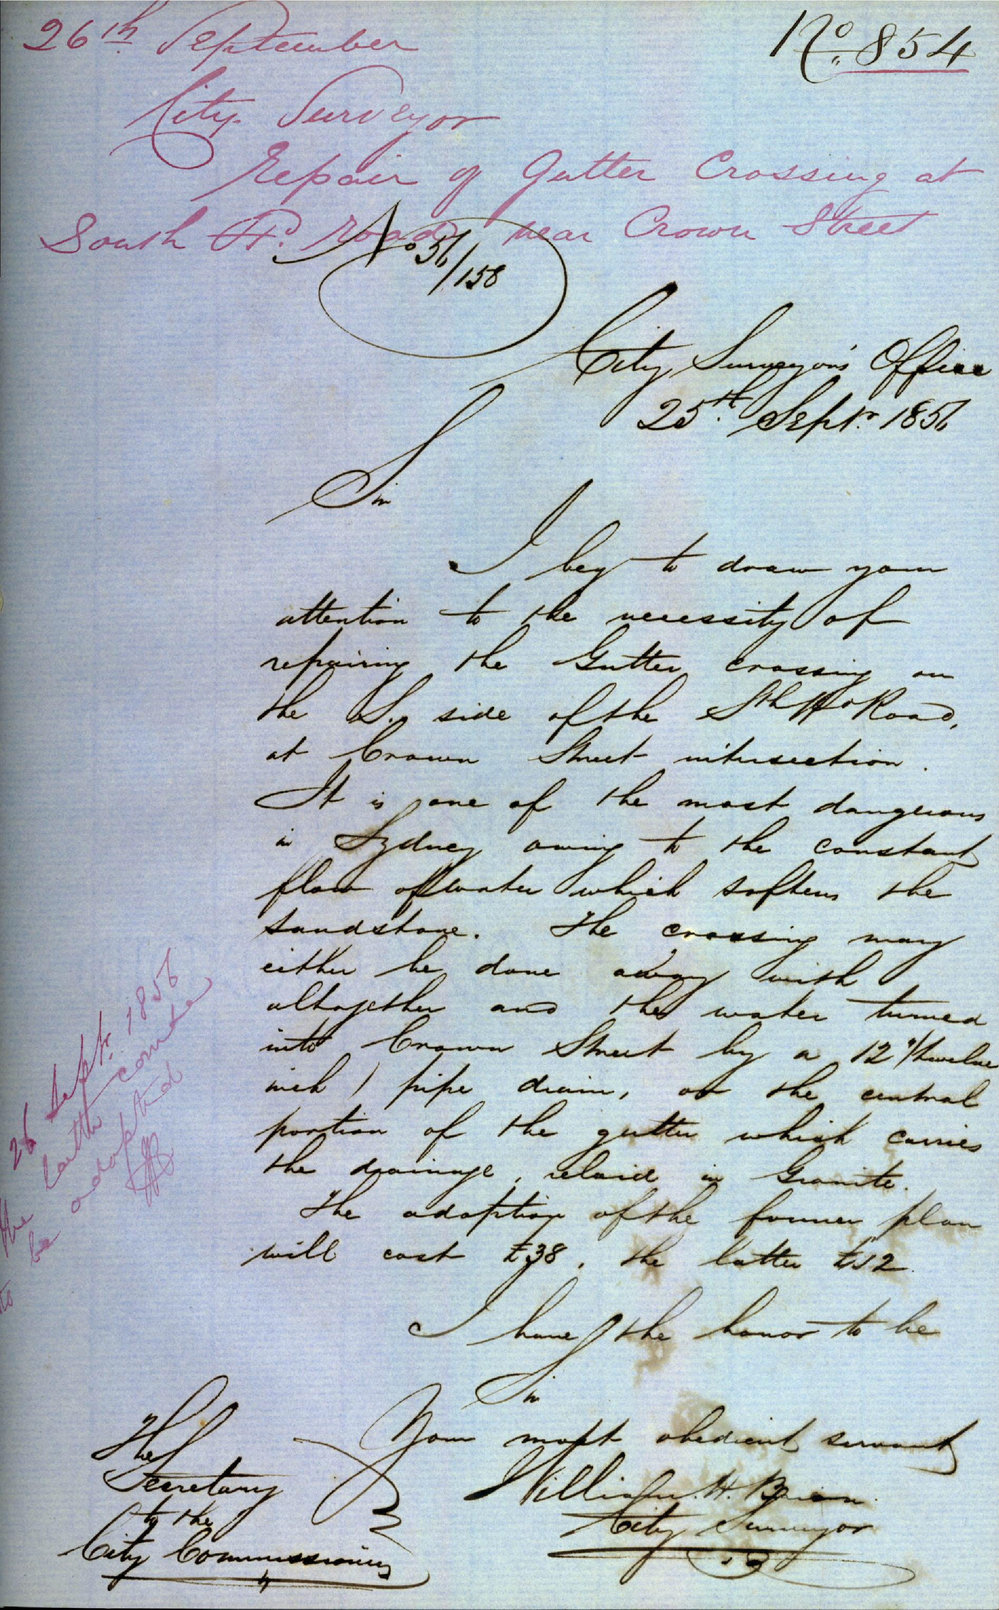 26th September
No. 854
City Surveyor
Repair of Gutter Crossing at
South Hd. Road near Crown Street
No 56/158
City Surveyor's Office
25th. Septr. 1856
Sir
I beg to draw your
attention to the necessity of
repairing the Gutter crossing on
the S. side of the Sth Hd Road,
at Crown Street intersection.
It is one of the most dangerous
in Sydney owing to the constant
flow of water which softens the
sandstone. The crossing may
either be done away with
altogether and the water turned
into Crown Street by a 12 "/twelve
inch / pipe drain, or the central
portion of the gutter which carries
the drainage, relaid in Granite.
The adoption of the former plan
will cost £38, the latter £12.
I have the honor to be
Sir
Your most obedient servant
William. H.
City Surveyor
The
Secretary
to the
City Commissioners
26 Septr. 1856
the latter course
to be adopted